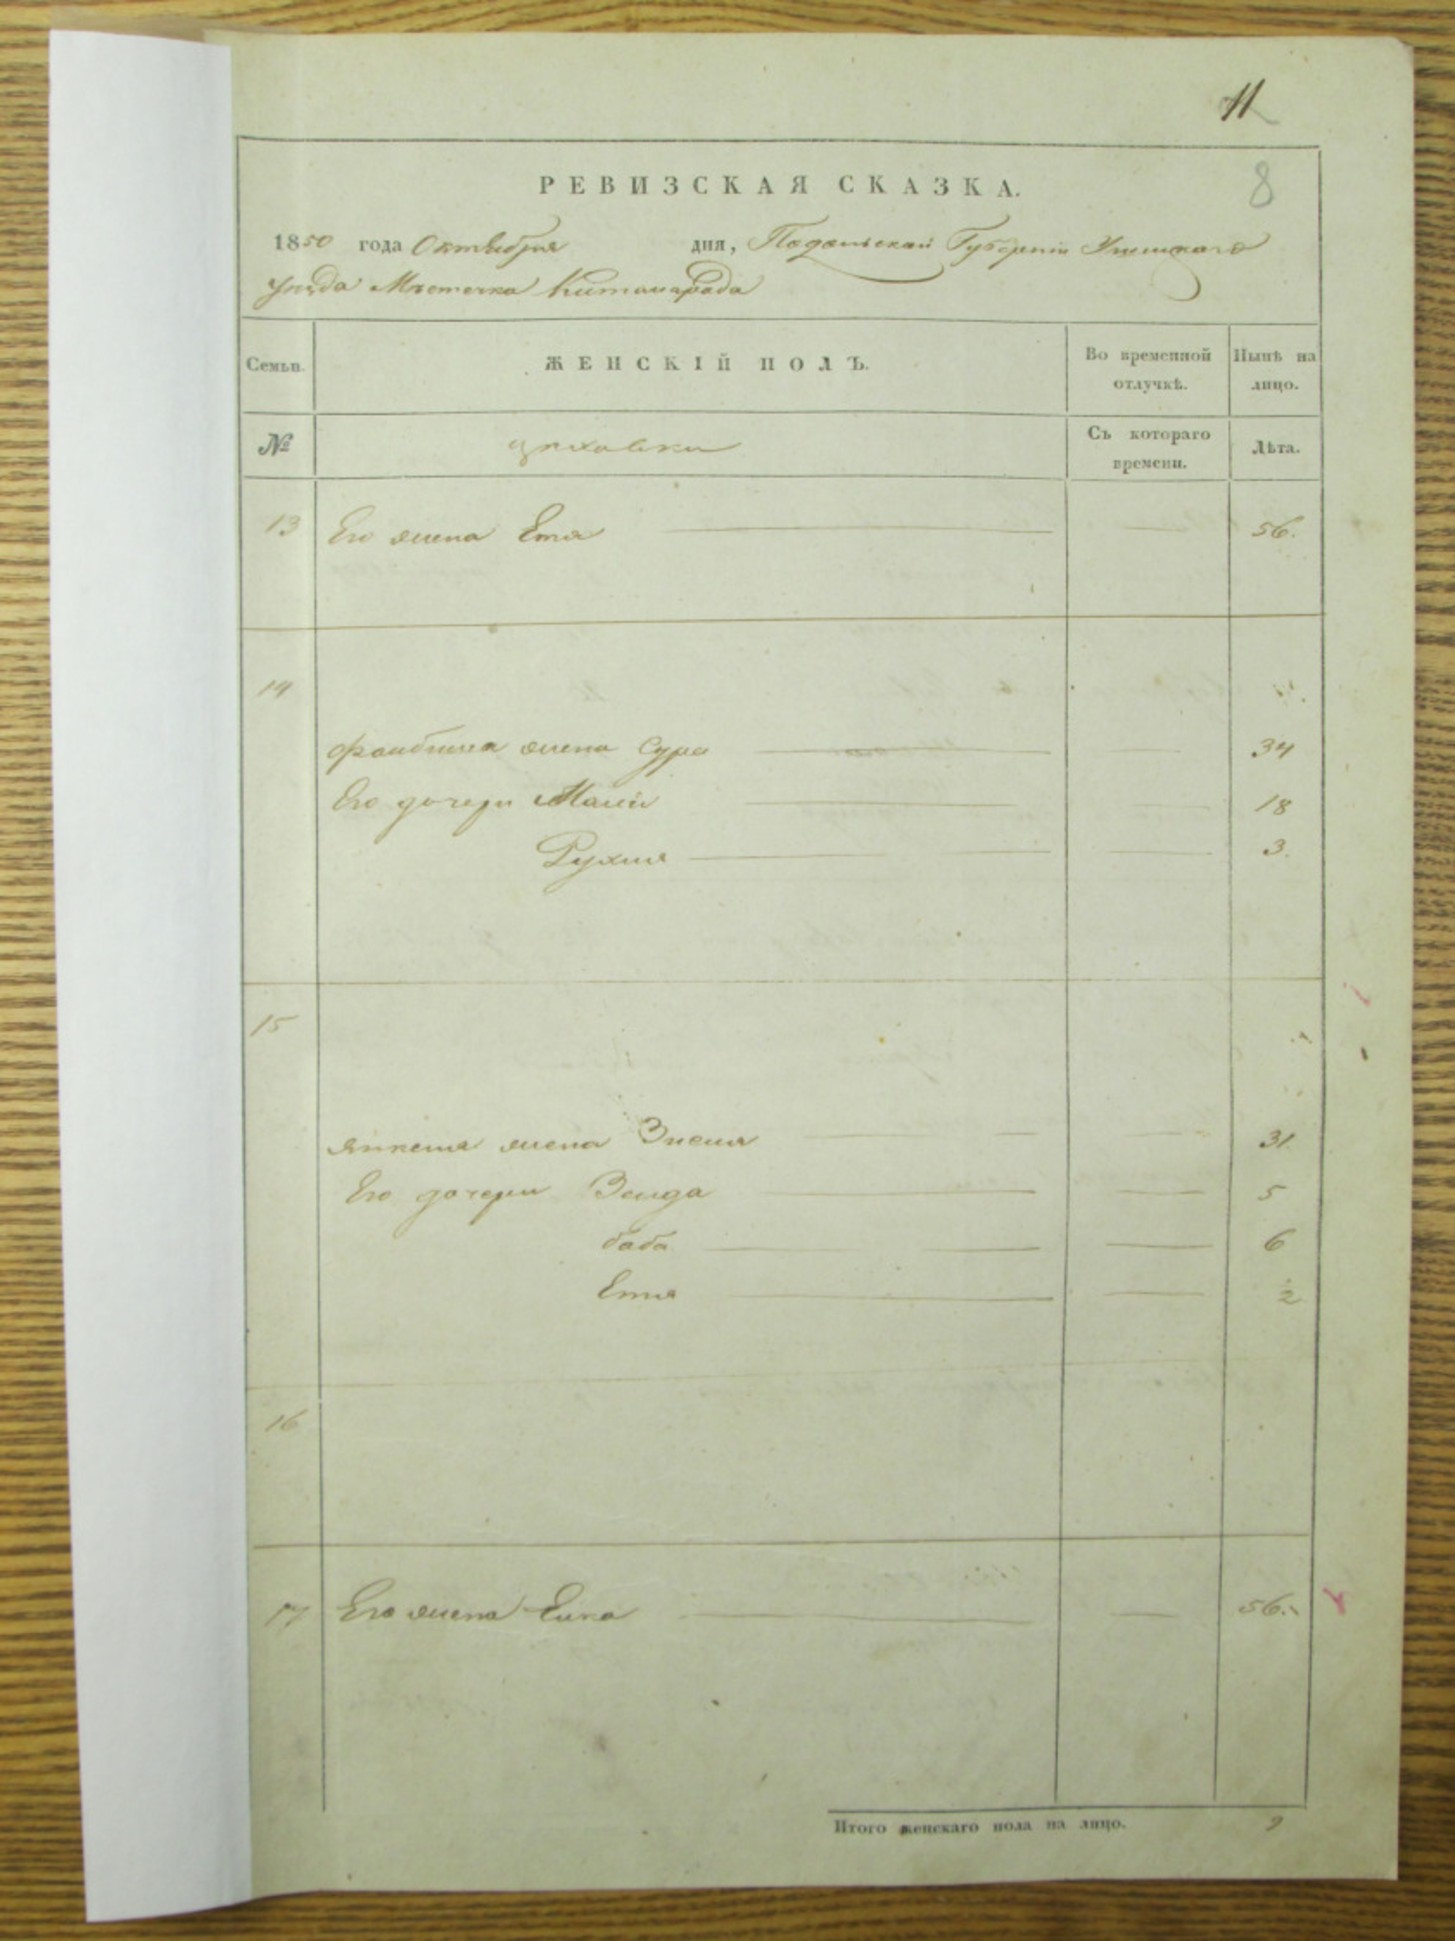 11
8
РЕВИЗСКАЯ СКАЗКА.
1850 года Октября дня, Подольской Губерніи Ушицкаго
уѣзда Мѣстечка Китайгорода
Семьи. ЖЕНСКІЙ ПОЛЪ. Во временной отлучкѣ. Нынѣ на лицо.
№ Съ котораго времени. Лѣта.
13 Его жена Етя 56.
14
жена Сура 34
Его дочери 18
Рухля 3.
15
жена 31.
Его дочери Зельда 5
баба 6
Етя 2
16
17 Его жена 56.
Итого женскаго пола на лицо. 9